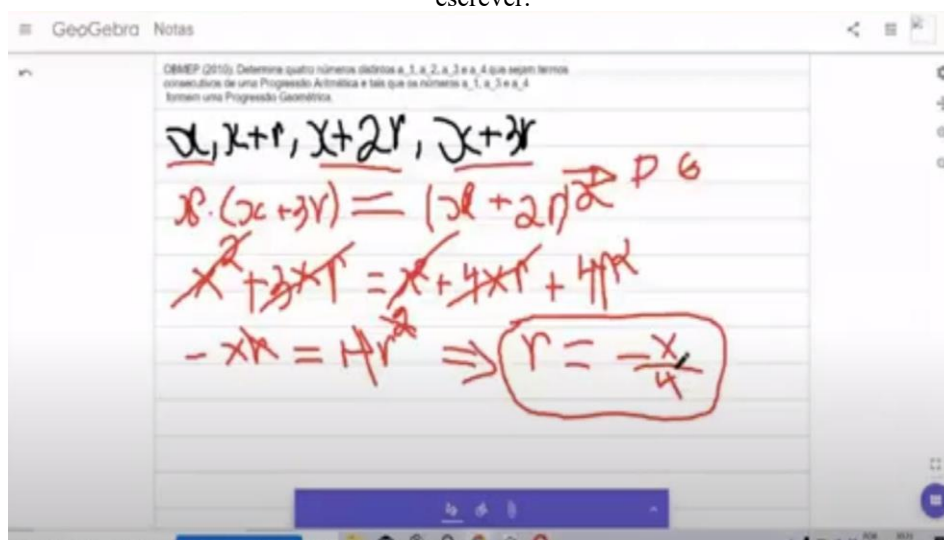 escrever.
GeoGebra Notas
OBMEP (2010). Determine quatro números distintos a_1, a_2, a_3 e a_4 que sejam termos
consecutivos de uma Progressão Aritmética e tais que os números a_1, a_3 e a_4
formem uma Progressão Geométrica.
x, x+r, x+2r, x+3r
x·(x+3r) = (x+2r)² → PG
x²+3xr = x²+4xr+4r²
-xr = 4r² ⇒ r = -x/4